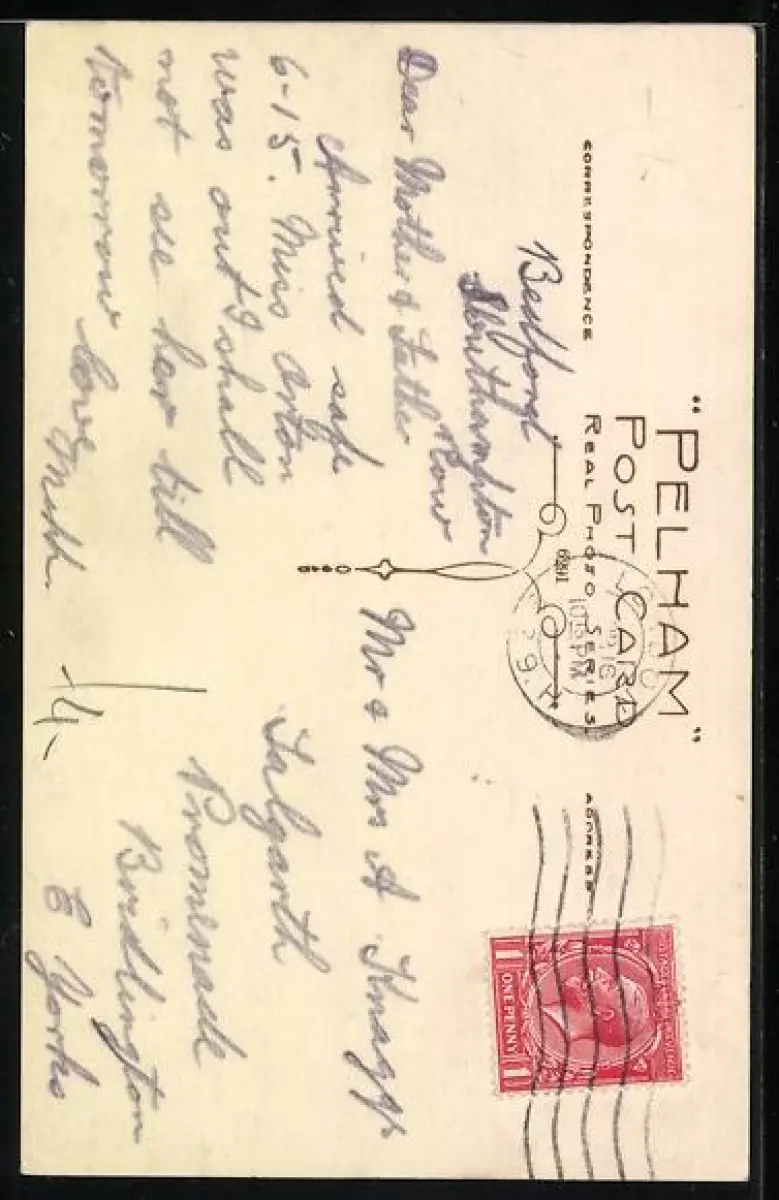 "PELHAM"
POST CARD
REAL PHOTO SERIES.
CORRESPONDENCE
ADDRESS
Bedford
Southampton
Row
Dear Mother & Father
Arrived safe
6-15. Miss Orton
was out I shall
not see her till
tomorrow love
Mr & Mrs A Knapp
Talgarth
Promenade
Bridlington
E Yorks
1/4-
10 15 PM
ONE PENNY
1 1